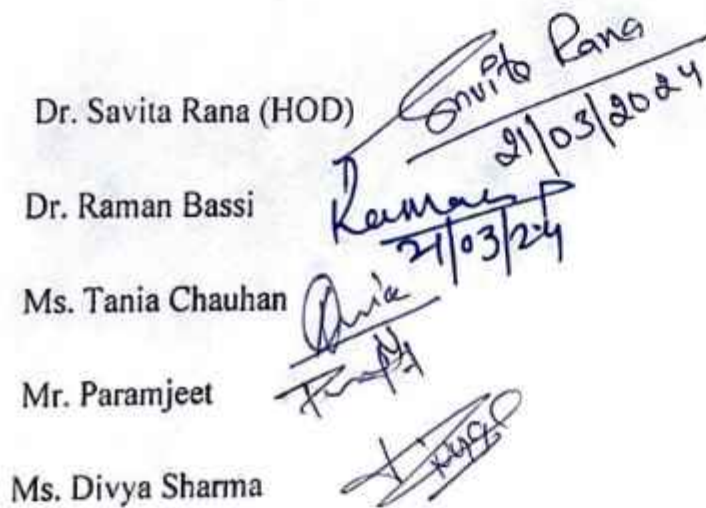 Dr. Savita Rana (HOD) Savita Rana
21/03/2024
Dr. Raman Bassi Raman
21/03/24
Ms. Tania Chauhan
Mr. Paramjeet
Ms. Divya Sharma Divya